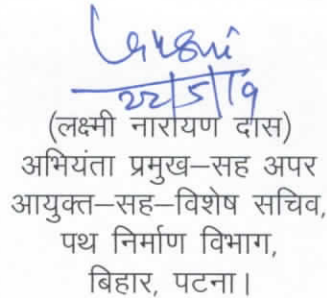 22/5/19
(लक्ष्मी नारायण दास)
अभियंता प्रमुख–सह अपर
आयुक्त–सह–विशेष सचिव,
पथ निर्माण विभाग,
बिहार, पटना।